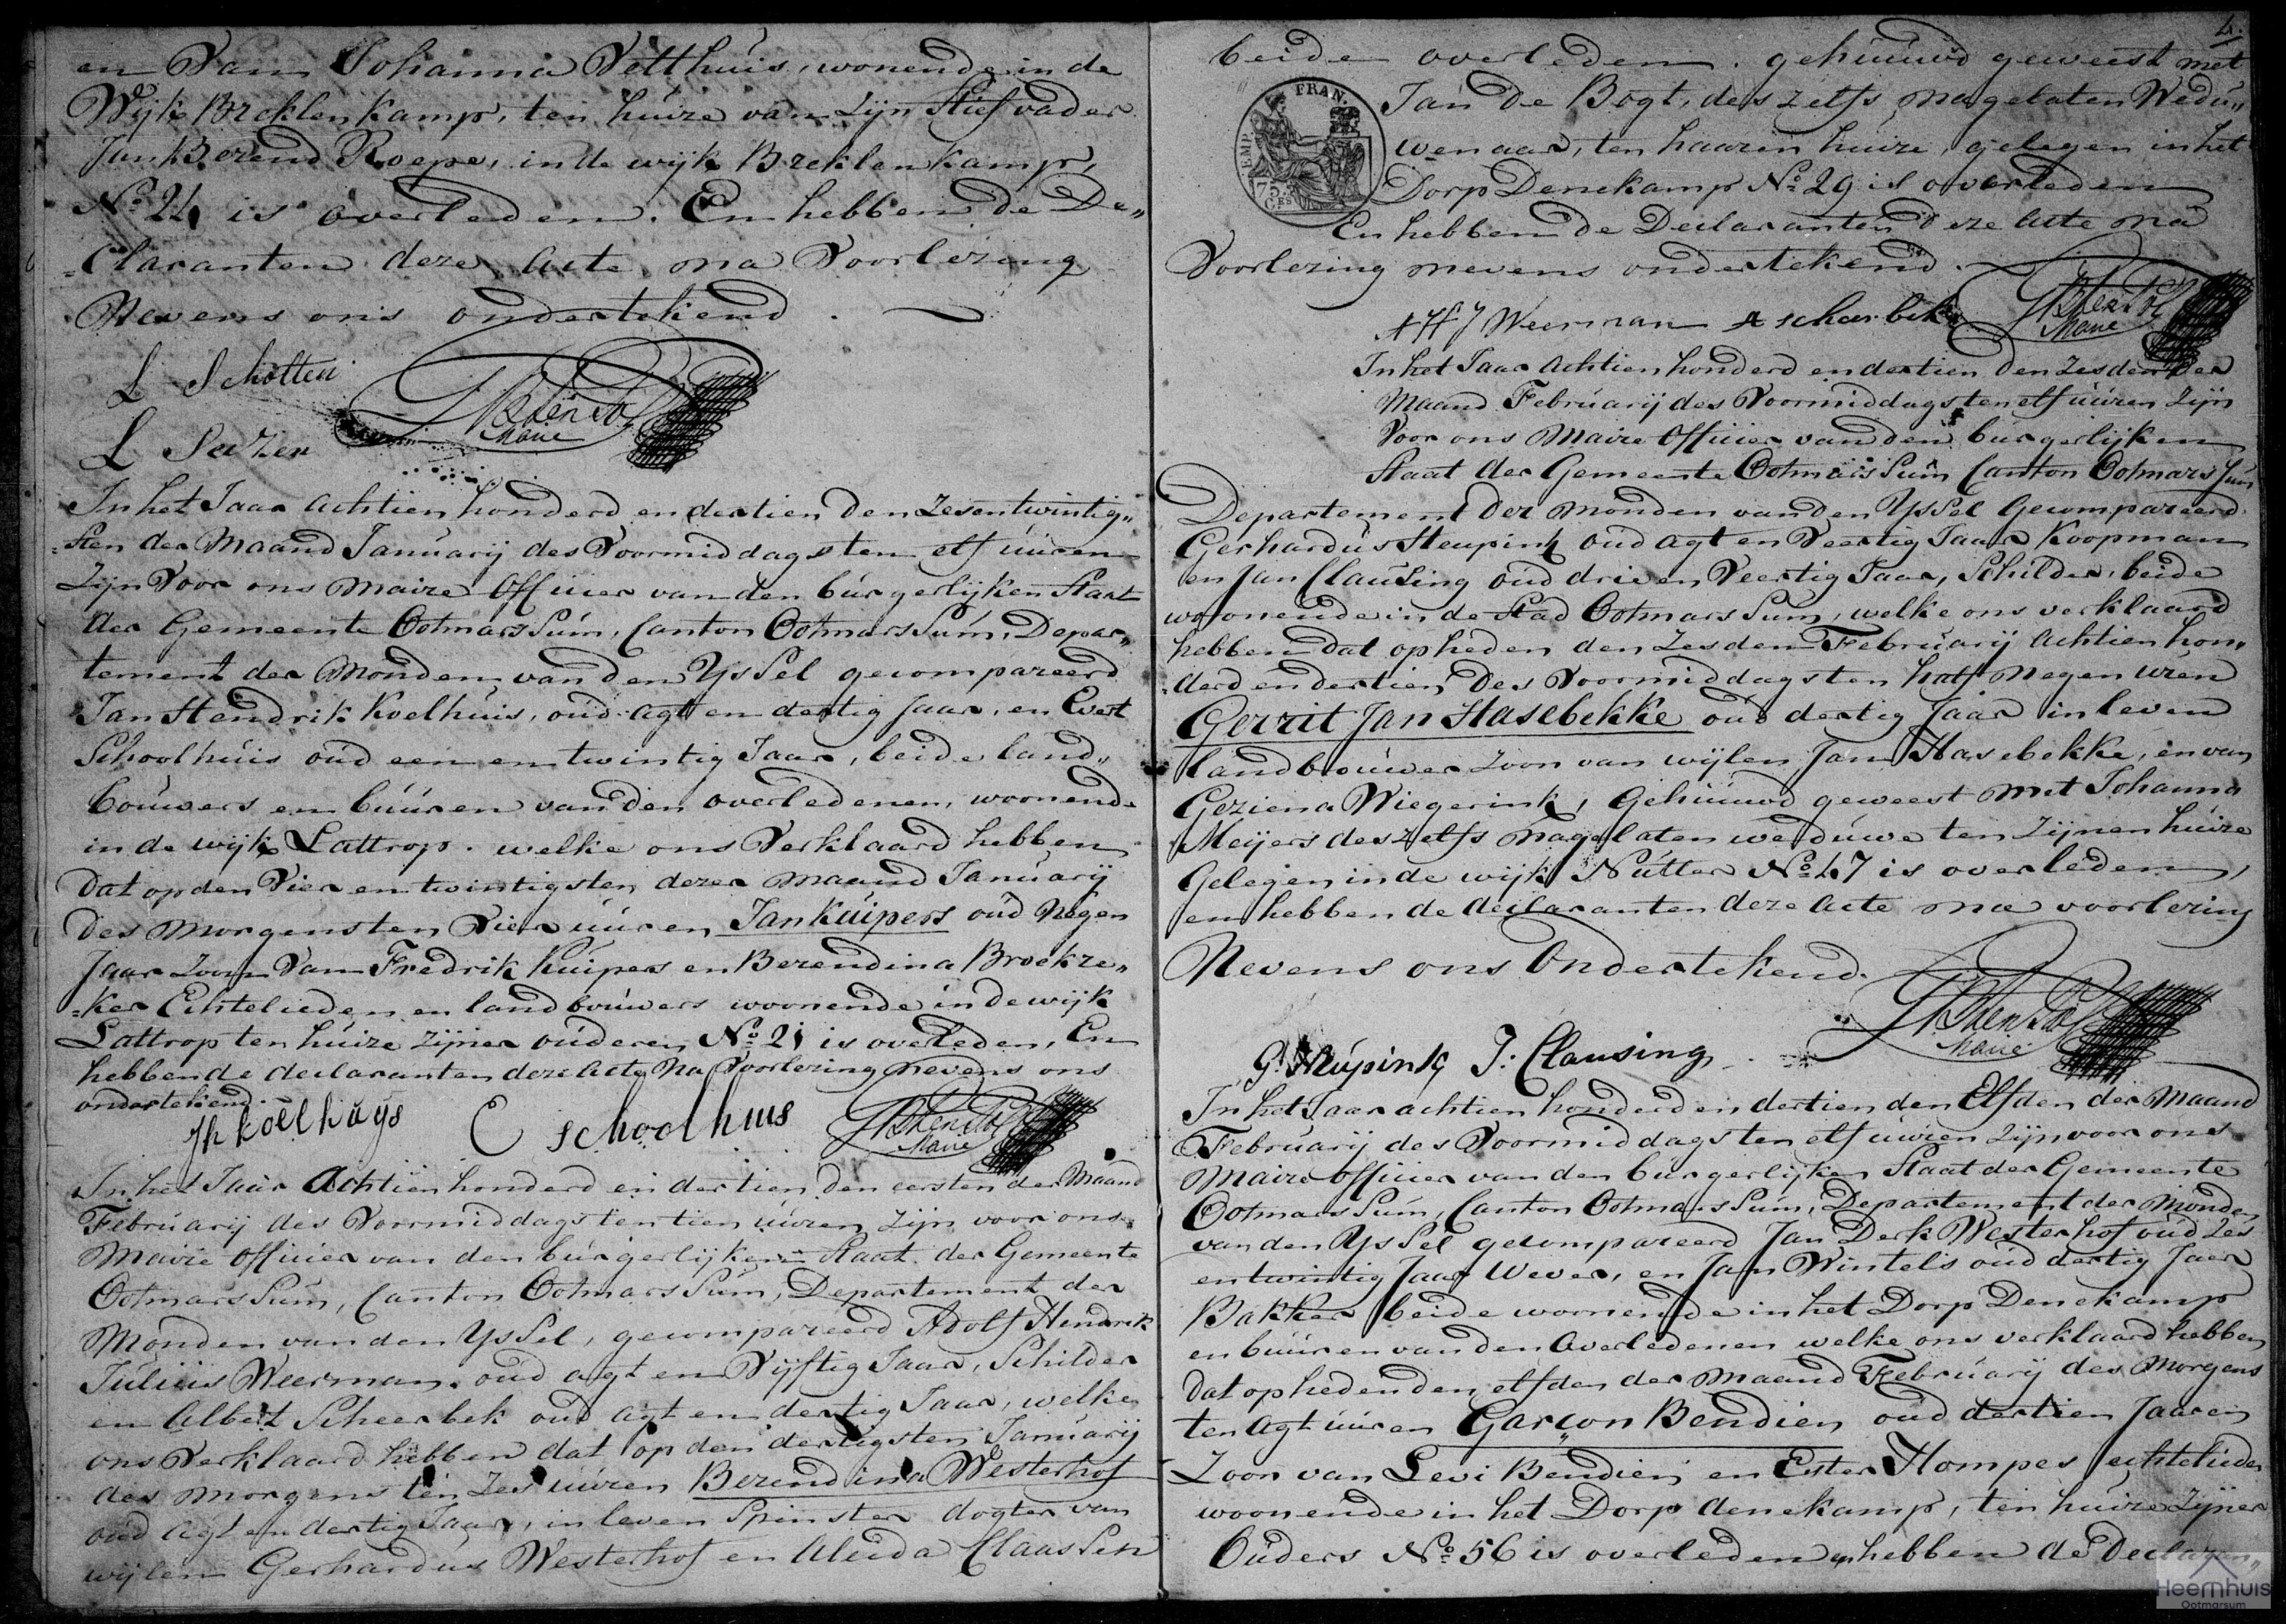 en Van Johanna Velthuis, wonende in de
Wijk Breklenkamp, ten huize van zijn Stiefvader
Jan Berend Roepe, in de wijk Breklenkamp,
No. 24 is overleden. En hebben de De„
„Claranten deze acte na Voorlezing
Nevens ons ondertekend.
L Scholten
Maire
L
In het Jaar achtien honderd en dertien den zesentwintig„
„sten der Maand Januarij des Voormiddags ten elf uuren
Zijn Voor ons Maire Officier van den burgerlijken Staat
der Gemeente Ootmarssum, Canton Ootmarssum, Depar„
tement der Monden van den Yssel gecompareerd
Jan Hendrik Koelhuis, oud agt en dertig Jaar, en Evert
Schoolhuis oud een en twintig Jaar, beide land„
bouwers en buuren van den overledenen, woonende
in de wijk Lattrop. welke ons Verklaard hebben
Dat op den Vier en twintigsten dezer maand Januarij
Des Morgens ten Vier uuren Jan Kuipers oud Negen
Jaar Zoon Van Fredrik Kuipers en Berendina Broekze„
„ker Echtelieden en landbouwers woonende in de wijk
Lattrop ten huize zijner ouderen No. 21 is overleden, En
hebben de declaranten deze acte Na Voorlezing nevens ons
ondertekend.
JH Koelhuys E schoolhuis Maire
In het Jaar Achtien honderd en dertien den eersten der Maand
Februarij des Voormiddags ten tien uuren zijn voor ons
Maire officier van den burgerlijken Staat der Gemeente
Ootmarssum, Canton Ootmarssum, Departement der
Monden van den Yssel, gecompareerd Adolf Hendrik
Julius Weerman. oud agt en Vijftig Jaar, Schilder
en Albert Scheerbek oud agt en dertig Jaar, welke
ons Verklaard hebben dat op den dertigsten Januarij
des morgens ten Zes uuren Berendina Westerhof
oud agt en dertig Jaar, in leven Spinster dogter van
wijlen Gerhardus Westerhof en Aleida Claassen
4.
beide overleden. gehuuwd geweest met
Jan de Bogt, des zelfs nagelaten Wedu„
wenaar, ten haaren huize, gelegen in het
Dorp Denekamp No. 29 is overleden
En hebben de Declaranten deze acte na
Voorlezing nevens ondertekend.
EMP. FRAN.
75 CES
AHJ Weerman A scharbek Maire
In het Jaar achtien honderd en dertien den Zesden der
Maand Februarij des Voormiddags ten elf uuren zijn
Voor ons Maire Officier van den burgerlijken
Staat der Gemeente Ootmarssum Canton Ootmarssum
Departement der Monden van den Yssel Gecompareerd
Gerhardus Heupink oud agt en Veertig Jaar Koopman
en Jan Clausing oud drie en Veertig Jaar, Schilder, beide
woonende in de Stad Ootmarssum, welke ons verklaard
hebben dat op heden den zesden Februarij Achtien hon„
„derd en dertien Des Voormiddags ten half Negen uren
Gerrit Jan Hasebekke oud dertig Jaar in leven
landbouwer zoon van wijlen Jan Hasebekke, en van
Geziena Wiegerink, Gehuuwd geweest met Johanna
Meijers des zelfs nagelaten weduwe ten zijnen huize
Gelegen in de wijk Nutter No. 47 is overleden,
en hebben de declaranten deze acte na voorlezing
Nevens ons Ondertekend.
G. Heupink J. Clausing Maire
In het Jaar achtien honderd en dertien den Elfden der Maand
Februarij des Voormiddags ten elf uuren zijn voor ons
Maire officier van den burgerlijken Staat der Gemeente
Ootmarssum, Canton Ootmarssum, Departement der Monden
van den Yssel gecompareerd Jan Derk Westerhof oud Zes
en twintig Jaar Wever, en Jan Wintels oud dertig Jaar
Bakker beide woonende in het Dorp Denekamp
en buuren van den Overledenen welke ons verklaard hebben
Dat op heden den elfden der Maand Februarij des Morgens
ten Agt uuren Garçon Bendien oud dertien Jaaren
Zoon van Levi Bendien en Ester Hompes echtelieden
woonende in het Dorp denekamp, ten huize zijner
Ouders No. 56 is overleden en hebben de Declaran„
Heemhuis
Ootmarsum